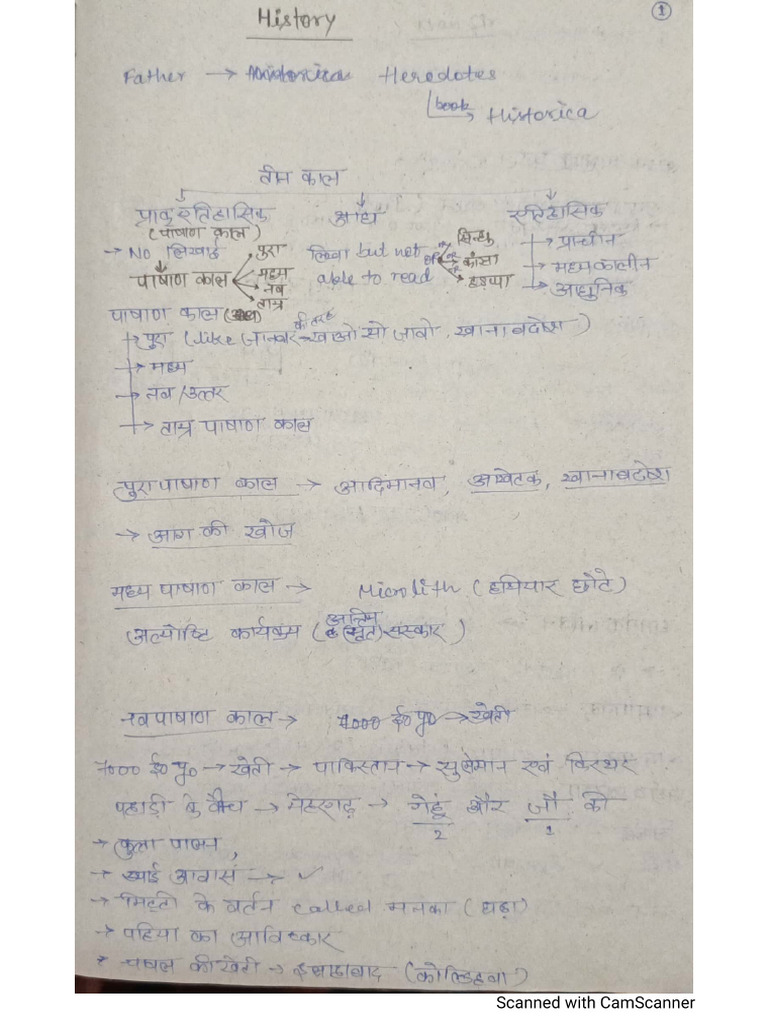 History
1
Father → Heredotes
book → Historica
तीन काल
प्राक् ऐतिहासिक आद्य ऐतिहासिक
(पाषाण काल)
→ No लिखाई लिखा but not able to read
पाषाण काल → पुरा → मध्य → नव → ताम्र
or सिन्धु or कांसा or हड़प्पा
→ प्राचीन
→ मध्यकालीन
→ आधुनिक
पाषाण काल
→ पुरा (like जानवर की तरह खाओ सो जावो, खानाबदोश)
→ मध्य
→ नव/उत्तर
→ ताम्र पाषाण काल
पुरापाषाण काल → आदिमानव, आखेटक, खानाबदोश
→ आग की खोज
मध्य पाषाण काल → Microlith (हथियार छोटे)
अन्त्येष्टि कार्यक्रम (अन्तिम संस्कार)
नवपाषाण काल → 7000 ई० पू० → खेती
7000 ई० पू० → खेती → पाकिस्तान → सुलेमान एवं किरथर
पहाड़ी के बीच → मेहरगढ़ → गेहूं और जौ की
2 1
→ कुत्ता पालन,
→ खाई आवास → ✓
→ मिट्टी के बर्तन called मनका (घड़ा)
→ पहिया का आविष्कार
→ चावल की खेती → इलाहाबाद (कोल्डिहवा)
Scanned with CamScanner